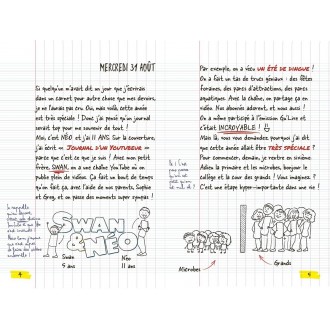 MERCREDI 31 AOÛT
Si quelqu'un m'avait dit un jour que j'écrirais
dans un carnet pour autre chose que mes devoirs,
je ne l'aurais pas cru. Oui, mais voilà, cette année
est très spéciale ! Donc j'ai pensé qu'un journal
serait top pour me souvenir de tout !
Moi, c'est NÉO et j'ai 11 ANS. Sur la couverture,
j'ai écrit « JOURNAL D'UN YOUTUBEUR »
parce que c'est ce que je suis ! Avec mon petit
frère, SWAN, on a une chaîne YouTube où on
publie plein de vidéos. Ça fait un bout de temps
qu'on fait ça, avec l'aide de nos parents, Sophie
et Greg, et on passe des moments super sympas !
SWAN
& NÉO
Swan
5 ans
Néo
11 ans
4
Par exemple, on a vécu UN ÉTÉ DE DINGUE !
On a fait un tas de trucs géniaux : des fêtes
foraines, des parcs d'attractions, des parcs
aquatiques. Avec la chaîne, on partage ça en
vidéo. Nos abonnés adorent, et nous aussi !
On a même participé à l'émission QuiLive et
c'était INCROYABLE !
Mais là, vous vous demandez pourquoi j'ai dit
que cette année allait être TRÈS SPÉCIALE ?
Pour commencer, demain, je rentre en sixième.
Adieu la primaire et les microbes, bonjour le
collège et la cour des grands ! Vous imaginez ?
C'est une étape hyper-importante dans une vie !
Microbes
Grands
5